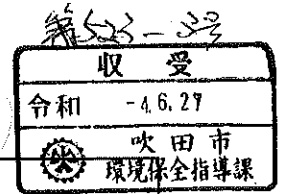 収受
令和 -4.6.27
吹田市
環境保全指導課